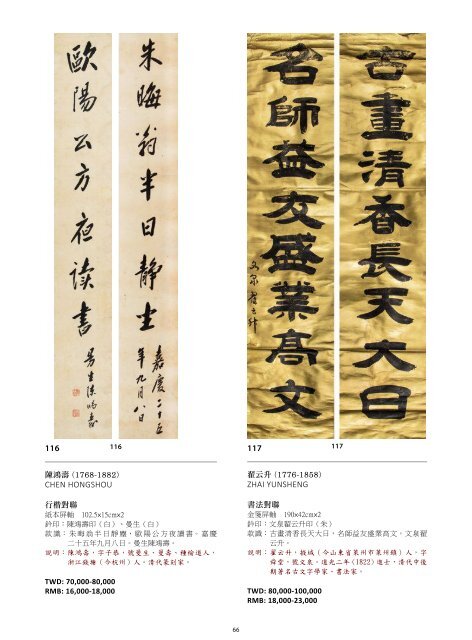 朱晦翁半日靜坐
嘉慶二十五
年九月八日
歐陽公方夜读書
曼生陳鴻壽
古畫清香長天大日
名師益友盛業高文
文泉翟云升
116
116
117
117
陳鴻壽 (1768-1882)
CHEN HONGSHOU
行楷對聯
紙本屏軸 102.5×15cm×2
鈐印：陳鴻壽印（白）、曼生（白）
款識：朱晦翁半日靜塵，歐陽公方夜讀書。嘉慶
二十五年九月八日。曼生陳鴻壽。
說明：陳鴻壽，字子恭，號曼生，曼壽、種榆道人，
浙江錢塘（今杭州）人。清代篆刻家。
TWD: 70,000-80,000
RMB: 16,000-18,000
翟云升 (1776-1858)
ZHAI YUNSHENG
書法對聯
金箋屏軸 190×42cm×2
鈐印：文泉翟云升印（朱）
款識：古畫清香長天大日，名師益友盛業高文。文泉翟
云升。
說明：翟云升，掖城（今山東省萊州市萊州鎮）人，字
舜堂，號文泉。道光二年(1822)進士，清代中後
期著名古文字學家、書法家。
TWD: 80,000-100,000
RMB: 18,000-23,000
66